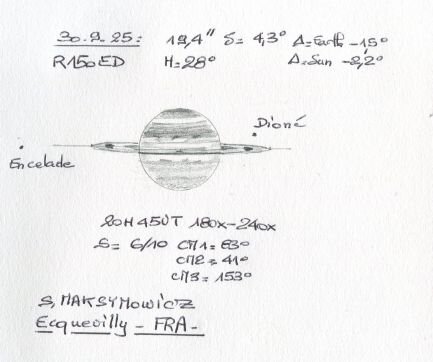 30.9.25: 19,4" S= 4,3° Δ=Earth -15°
R150ED H=28° Δ=Sun -2,2°
Dioné
Encelade
20H45UT 180x-240x
S= 6/10 CM1= 63°
CM2= 41°
CM3= 153°
S, MAKSYMOWICZ
Ecquevilly - FRA -